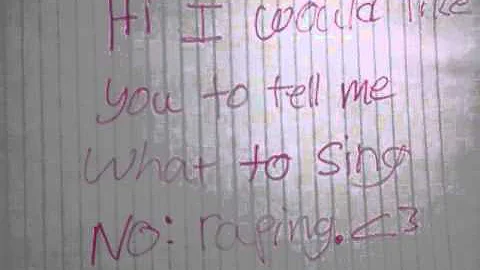 Hi I would like
you to tell me
what to sing
NO: raping.<3